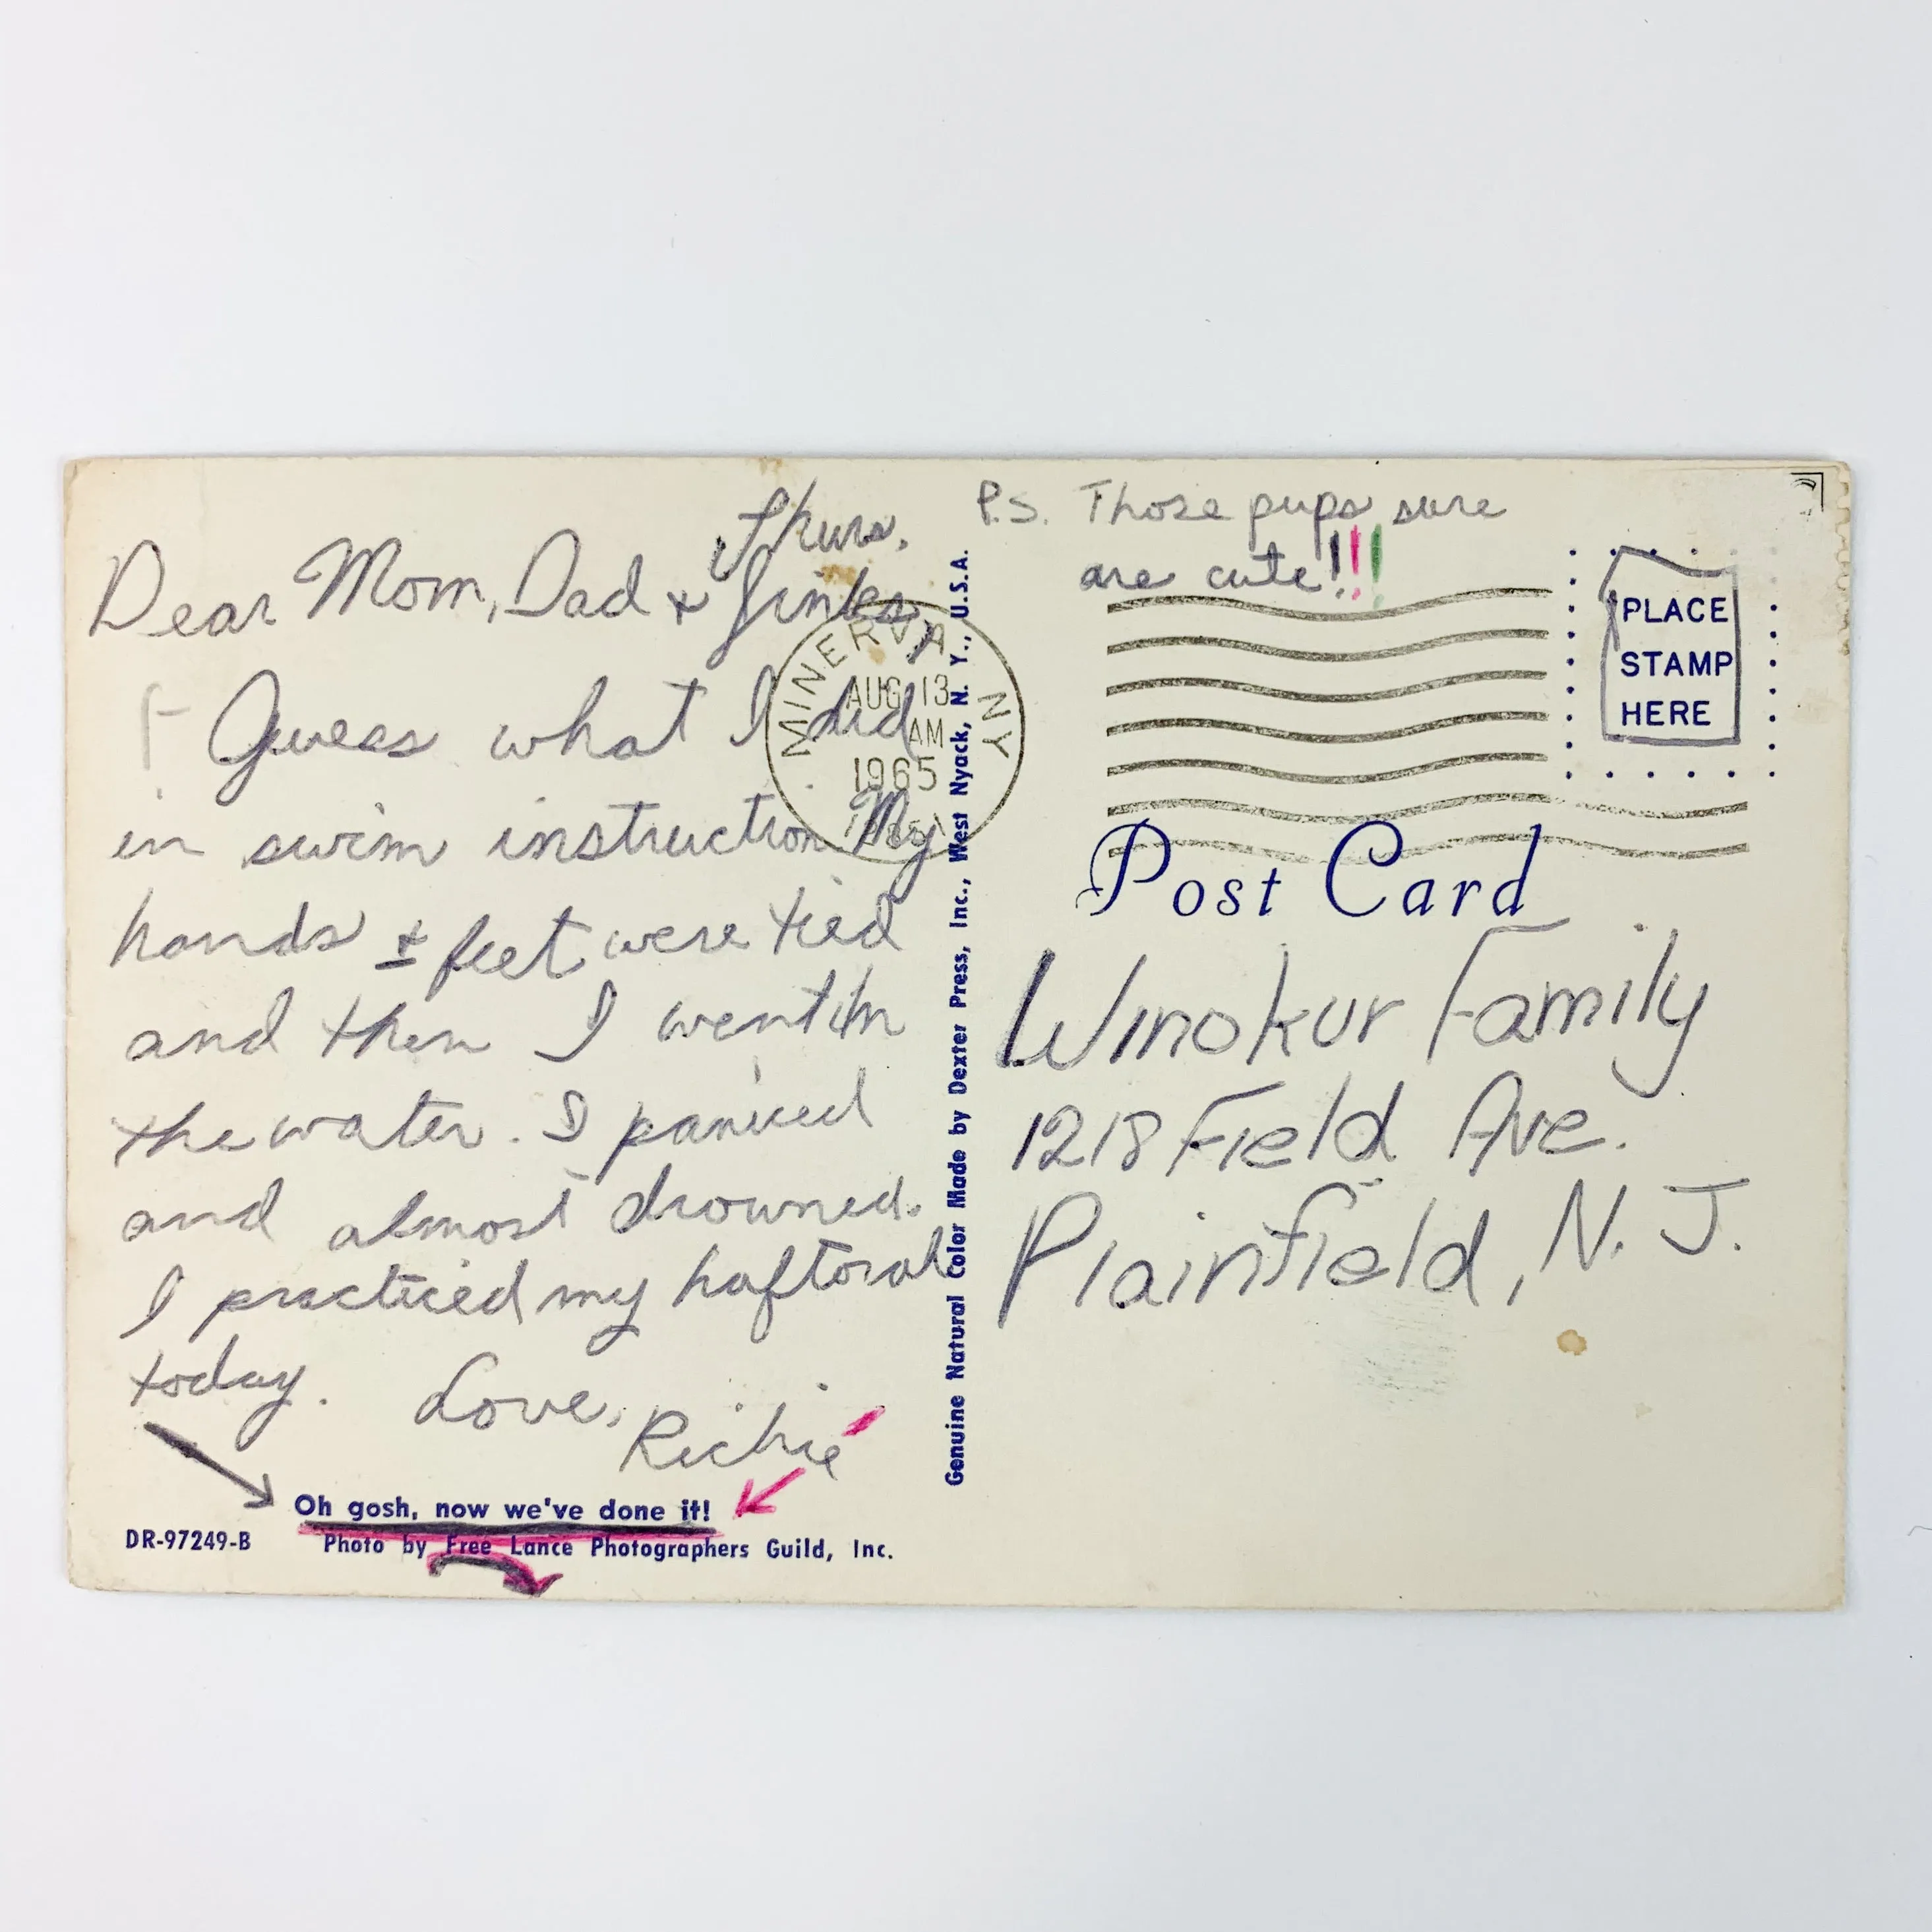 Thurs.
Dear Mom, Dad + Jinks,
Guess what I did
in swim instruction My
hands + feet were tied
and then I went in
the water. I paniced
and almost drowned.
I practiced my haftorah
today. Love,
Richie
Oh gosh, now we've done it!
DR-97249-B Photo by Free Lance Photographers Guild, Inc.
Genuine Natural Color Made by Dexter Press, Inc., West Nyack, N. Y., U.S.A.
MINERVA NY
AUG 13
AM
1965
P.S. Those pups sure
are cute!!!
PLACE
STAMP
HERE
Post Card
Winokur Family
1218 Field Ave.
Plainfield, N. J.